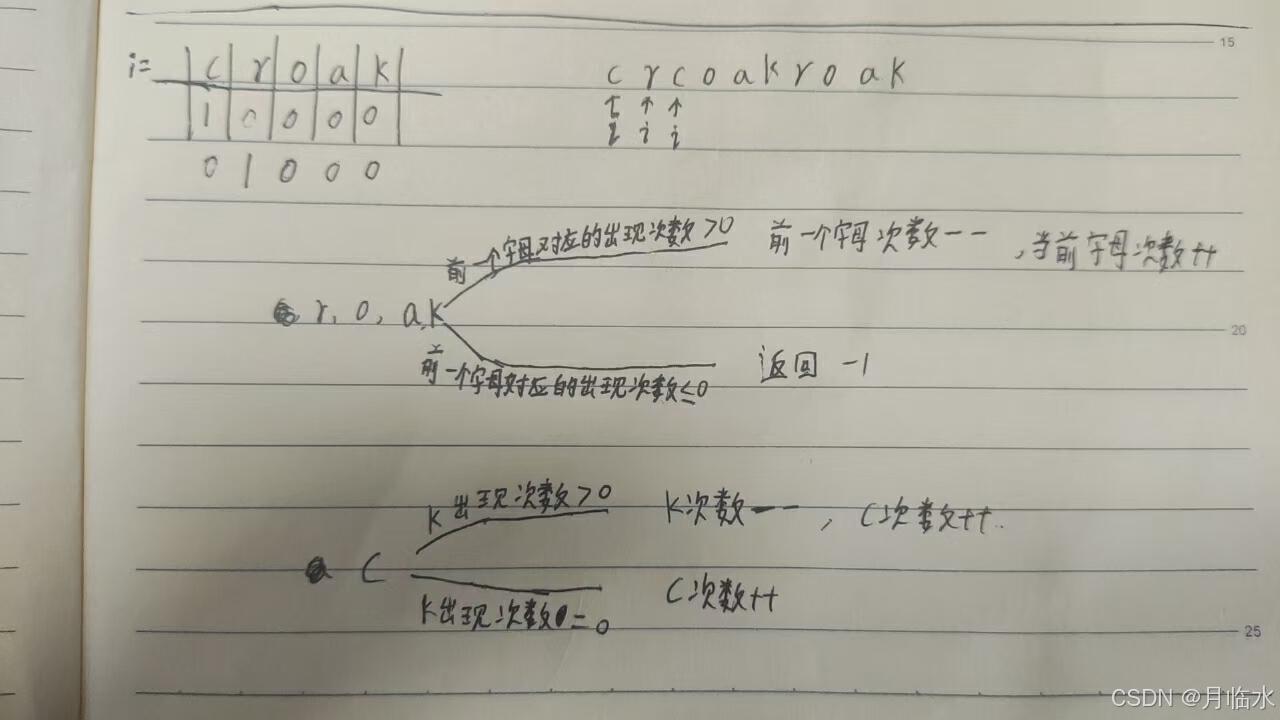 15
i= c r o a k
c r c o a k r o a k
1 0 0 0 0
i i i
0 1 0 0 0
前一个字母对应的出现次数>0 前一个字母次数--,当前字母次数++
r, o, a, k
20
前一个字母对应的出现次数≤0 返回 -1
k出现次数>0 k次数--, c次数++.
c
k出现次数=0 c次数++
25
CSDN @月临水